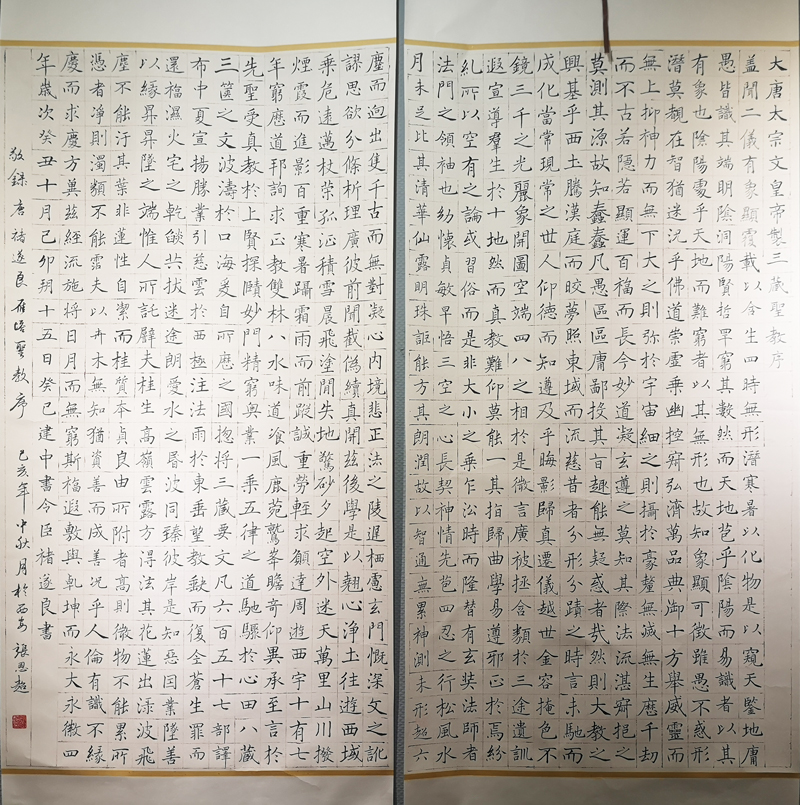 大唐太宗文皇帝製三藏聖教序
蓋聞二儀有象顯覆載以含生四時無形潛寒暑以化物是以窺天鑒地庸
愚皆識其端明陰洞陽賢哲罕窮其數然而天地苞乎陰陽而易識者以其
有象也陰陽處乎天地而難窮者以其無形也故知象顯可徵雖愚不惑形
潛莫覩在智猶迷況乎佛道崇虛乘幽控寂弘濟萬品典御十方舉威靈而
無上抑神力而無下大之則彌於宇宙細之則攝於豪釐無滅無生歷千劫
而不古若隱若顯運百福而長今妙道凝玄遵之莫知其際法流湛寂挹之
莫測其源故知蠢蠢凡愚區區庸鄙投其旨趣能無疑惑者哉然則大教之
興基乎西土騰漢庭而皎夢照東域而流慈昔者分形分蹟之時言未馳而
成化當常現常之世人仰德而知遵及乎晦影歸真遷儀越世金容掩色不
鏡三千之光麗象開圖空端四八之相於是微言廣被拯含類於三途遺訓
遐宣導羣生於十地然而真教難仰莫能一其指歸曲學易遵邪正於焉紛
糺所以空有之論或習俗而是非大小之乘乍沿時而隆替有玄奘法師者
法門之領袖也幼懷貞敏早悟三空之心長契神情先苞四忍之行松風水
月未足比其清華仙露明珠詎能方其朗潤故以智通無累神測未形超六
塵而迥出隻千古而無對凝心內境悲正法之陵遲栖慮玄門慨深文之訛
謬思欲分條析理廣彼前聞截偽續真開茲後學是以翹心淨土往遊西域
乘危遠邁杖策孤征積雪晨飛塗間失地驚砂夕起空外迷天萬里山川撥
煙霞而進影百重寒暑躡霜雨而前蹤誠重勞輕求願達周遊西宇十有七
年窮歷道邦詢求正教雙林八水味道飡風鹿菀鷲峯瞻奇仰異承至言於
先聖受真教於上賢探賾妙門精窮奧業一乘五律之道馳驟於心田八藏
三篋之文波濤於口海爰自所歷之國揔將三藏要文凡六百五十七部譯
布中夏宣揚勝業引慈雲於西極注法雨於東垂聖教缺而復全蒼生罪而
還福濕火宅之乾燄共拔迷途朗愛水之昏波同臻彼岸是知惡因業墜善
以緣昇昇墜之端惟人所託譬夫桂生高嶺雲露方得泫其花蓮出淥波飛
塵不能汙其葉非蓮性自潔而桂質本貞良由所附者高則微物不能累所
憑者淨則濁類不能霑夫以卉木無知猶資善而成善況乎人倫有識不緣
慶而求慶方冀茲經流施將日月而無窮斯福遐敷與乾坤而永大永徽四
年歲次癸丑十月己卯朔十五日癸巳建中書令臣褚遂良書
敬錄唐褚遂良雁塔聖教序 己亥年中秋月於西安 張思超